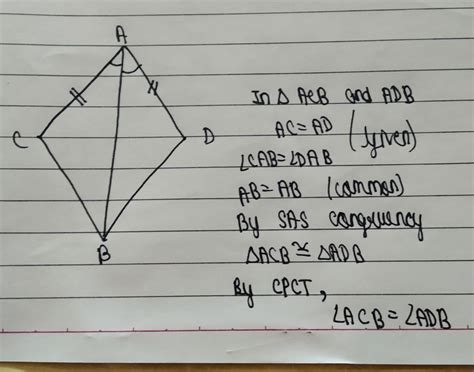 A
C
D
B
In Δ ACB and ADB
AC=AD (given)
∠CAB=∠DAB
AB=AB (common)
By SAS congruency
ΔACB≅ΔADB
By CPCT,
∠ACB=∠ADB